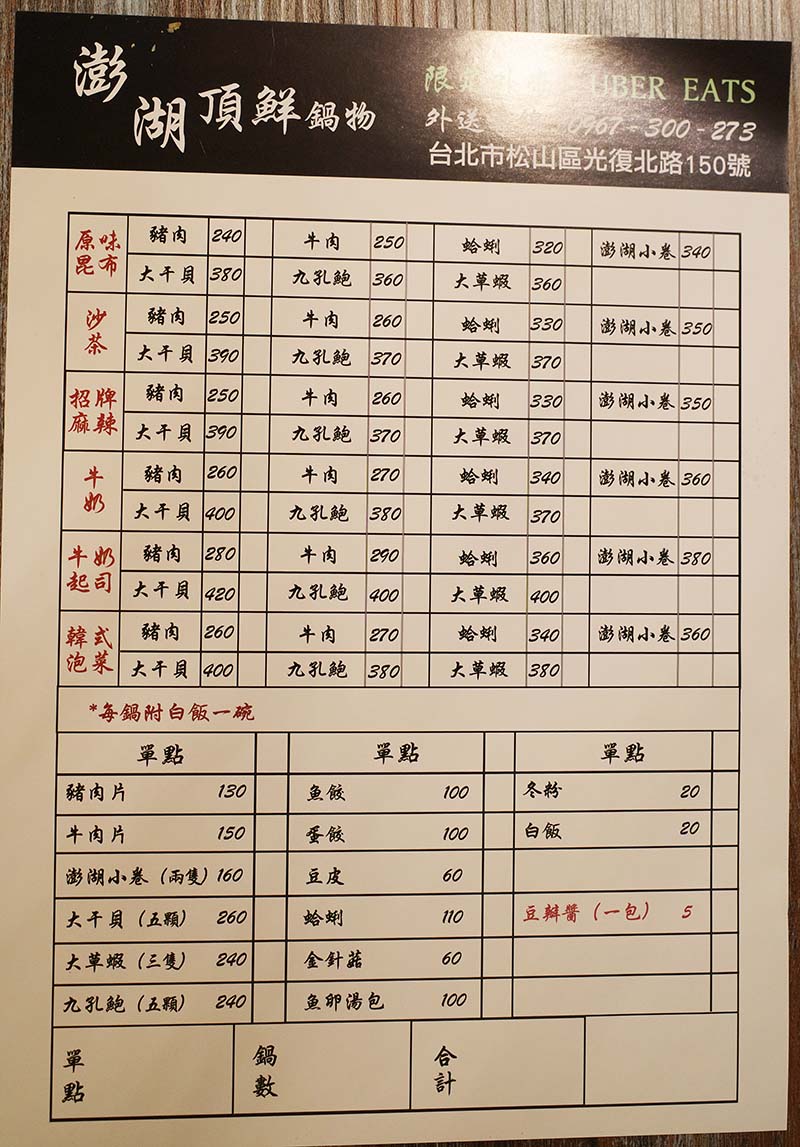 澎湖頂鮮鍋物
UBER EATS
外送 0967-300-273
台北市松山區光復北路150號
原味 豬肉 240 牛肉 250 蛤蜊 320 澎湖小卷 340
昆布 大干貝 380 九孔鮑 360 大草蝦 360
沙 豬肉 250 牛肉 260 蛤蜊 330 澎湖小卷 350
茶 大干貝 390 九孔鮑 370 大草蝦 370
招牌 豬肉 250 牛肉 260 蛤蜊 330 澎湖小卷 350
麻辣 大干貝 390 九孔鮑 370 大草蝦 370
牛 豬肉 260 牛肉 270 蛤蜊 340 澎湖小卷 360
奶 大干貝 400 九孔鮑 380 大草蝦 370
牛奶 豬肉 280 牛肉 290 蛤蜊 360 澎湖小卷 380
起司 大干貝 420 九孔鮑 400 大草蝦 400
韓式 豬肉 260 牛肉 270 蛤蜊 340 澎湖小卷 360
泡菜 大干貝 400 九孔鮑 380 大草蝦 380
*每鍋附白飯一碗
單點 單點 單點
豬肉片 130 魚餃 100 冬粉 20
牛肉片 150 蛋餃 100 白飯 20
澎湖小卷（兩隻）160 豆皮 60
大干貝（五顆） 260 蛤蜊 110 豆瓣醬（一包） 5
大草蝦（三隻） 240 金針菇 60
九孔鮑（五顆） 240 魚卵湯包 100
單點 鍋數 合計